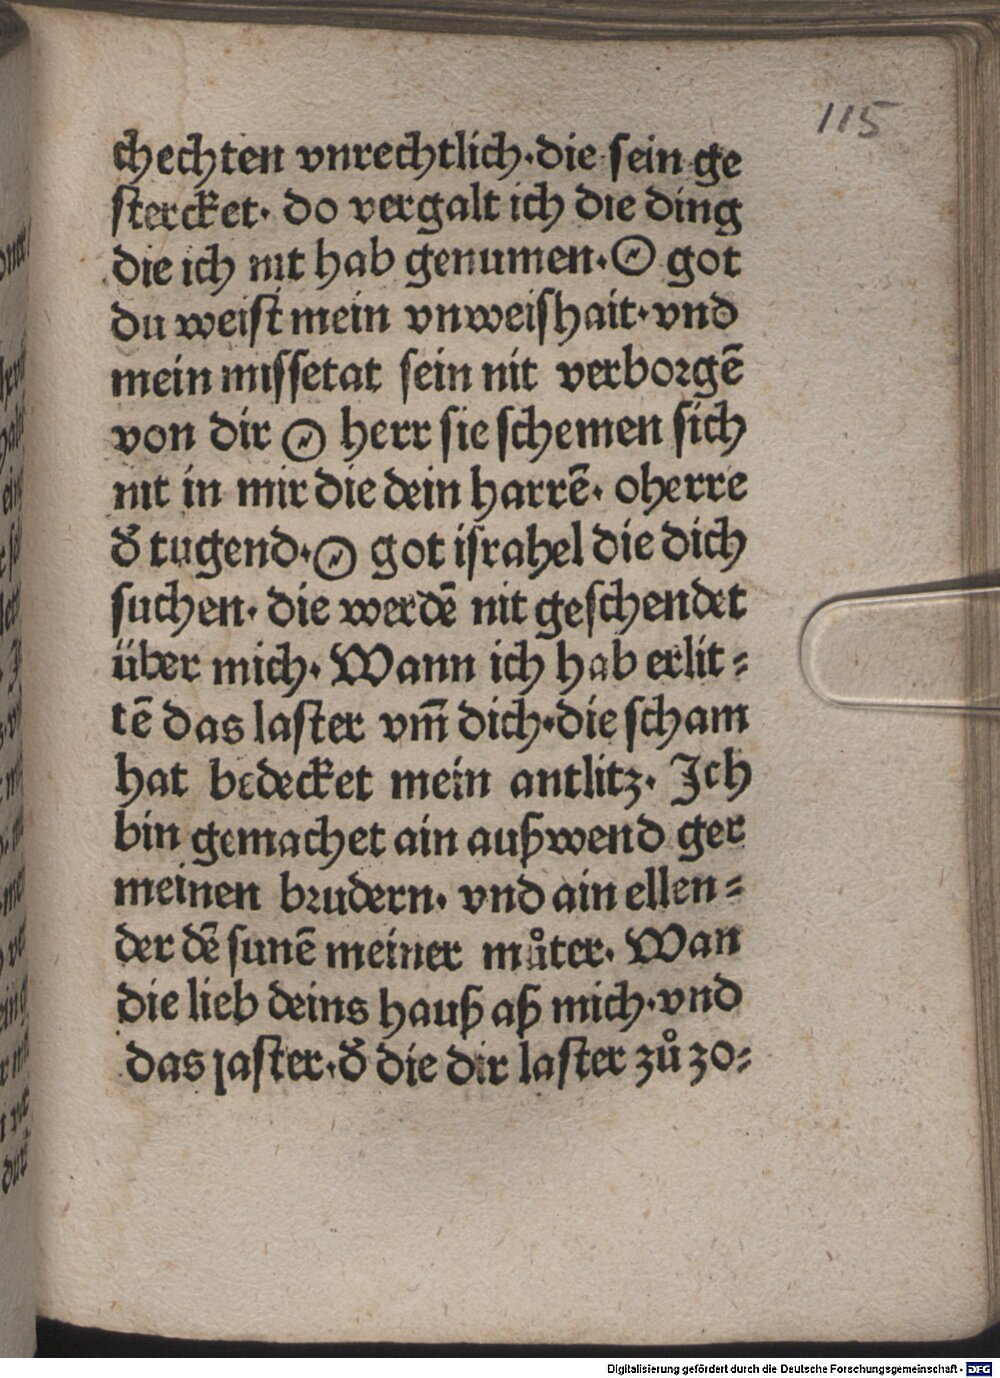 115
chechten vnrechtlich·die sein ge
stercket· do vergalt ich die ding
die ich nit hab genumen·O got
du weist mein vnweishait·vnd
mein missetat sein nit verborgē
von dir O herr sie schemen sich
nit in mir die dein harrē· oherre
d̄ tugend·O got israhel die dich
suchen· die werdē nit geschendet
über mich· Wann ich hab erlit⸗
tē das laster vm̄ dich·die scham
hat bedecket mein antlitz· Ich
bin gemachet ain außwend ger
meinen brudern· vnd ain ellen⸗
der dē sunē meiner můter· Wan
die lieb deins hauß aß mich·vnd
das laster·d̄ die dir laster zů zo⸗
Digitalisierung gefördert durch die Deutsche Forschungsgemeinschaft - DFG